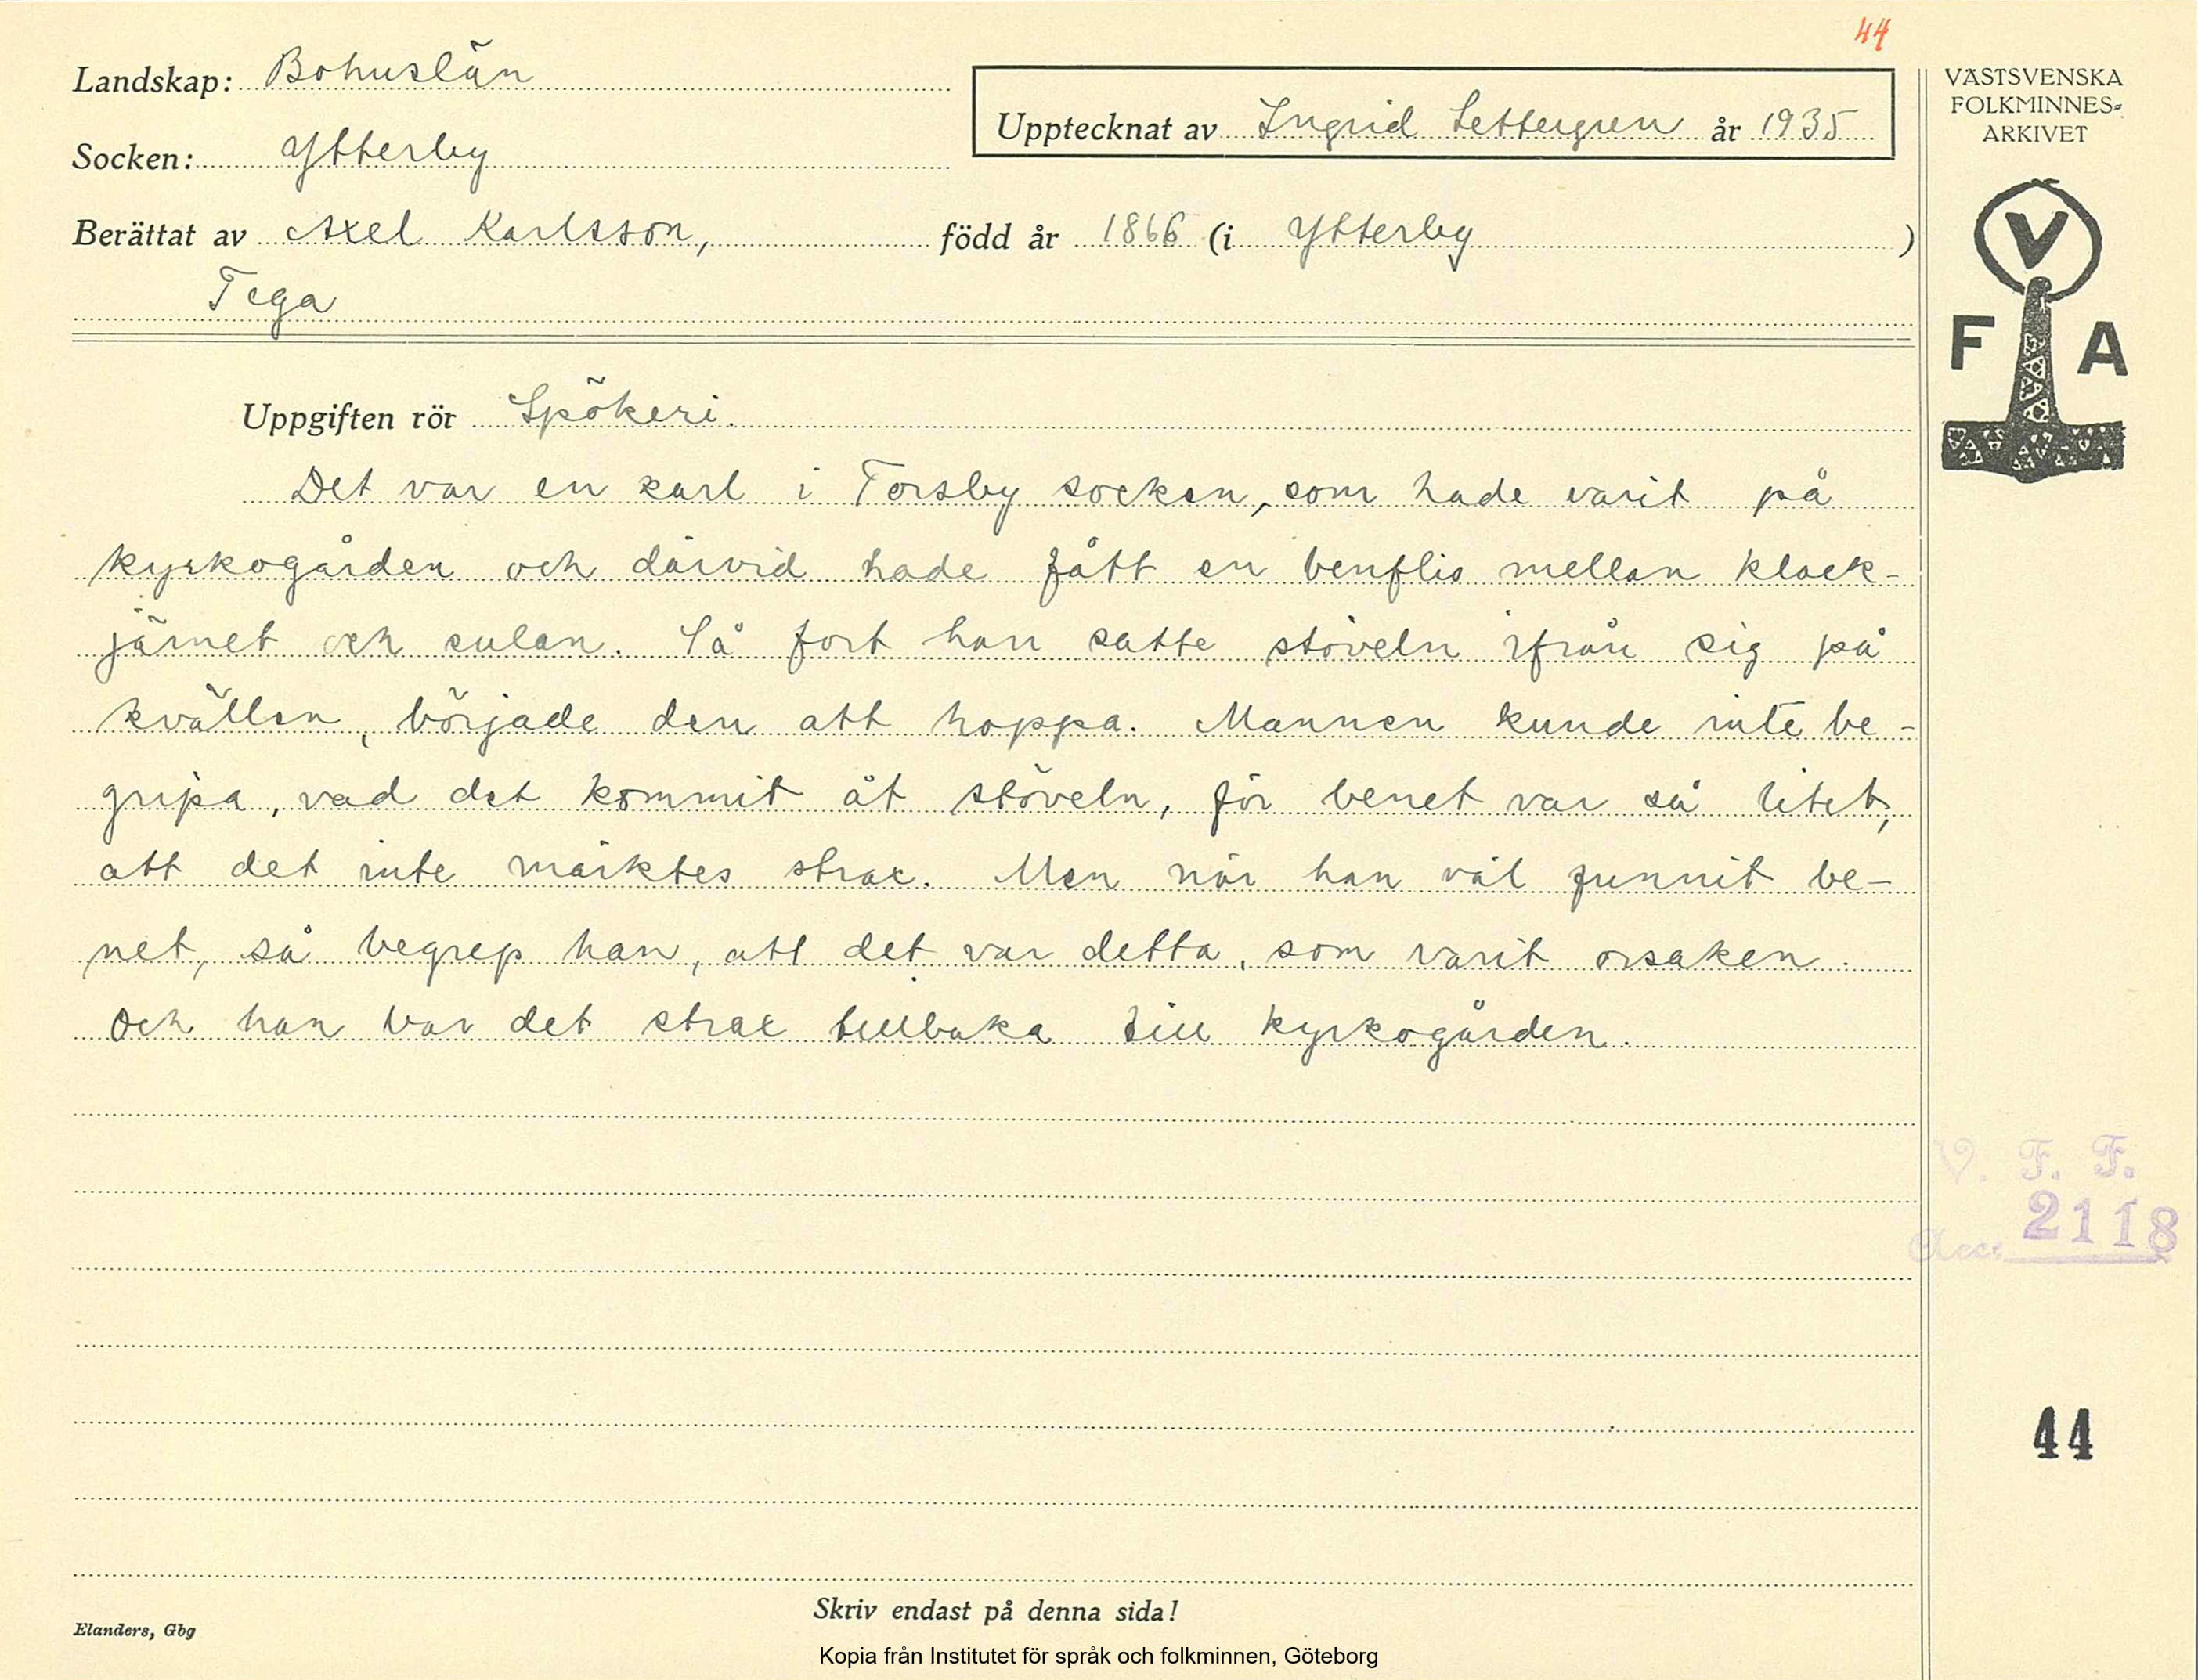 44
Landskap: Bohuslän
Upptecknat av Ingrid Settergren år 1935
Socken: Ytterby
Berättat av Axel Karlsson, född år 1866 (i Ytterby )
Tega
VÄSTSVENSKA
FOLKMINNES-
ARKIVET
V
F A
Uppgiften rör Spökeri.
Det var en karl i Torsby socken, som hade varit på
kyrkogården och därvid hade fått en benflis mellan klack-
järnet och sulan. Så fort han satte stöveln ifrån sig på
kvällen, började den att hoppa. Mannen kunde inte be-
gripa, vad det kommit åt stöveln, för benet var så litet,
att det inte märktes strax. Men när han väl funnit be-
net, så begrep han, att det var detta, som varit orsaken.
Och han bar det strax tillbaka till kyrkogården.
V. F. F.
Acc. 2118
44
Skriv endast på denna sida!
Elanders, Gbg
Kopia från Institutet för språk och folkminnen, Göteborg